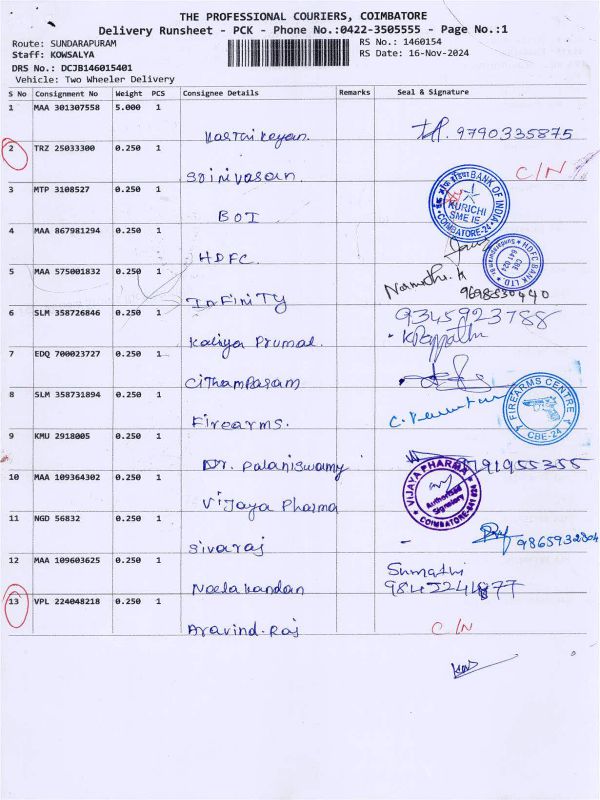 THE PROFESSIONAL COURIERS, COIMBATORE
Delivery Runsheet - PCK - Phone No.:0422-3505555 - Page No.:1
Route: SUNDARAPURAM RS No.: 1460154
Staff: KOWSALYA RS Date: 16-Nov-2024
DRS No.: DCJB146015401
Vehicle: Two Wheeler Delivery
S No Consignment No Weight PCS Consignee Details Remarks Seal & Signature
1 MAA 301307558 5.000 1
Karthikeyan. 9790335875
2 TRZ 25033300 0.250 1
Srinivasan C/N
3 MTP 3108527 0.250 1
BOI
BANK OF INDIA KURICHI SME IE COIMBATORE-24
4 MAA 867981294 0.250 1
HDFC.
HDFC BANK LTD CBE 641 024
5 MAA 575001832 0.250 1
InFiniTY Namathi. 9698530440
6 SLM 358726846 0.250 1 9345923788
Kaliya Prumal.
7 EDQ 700023727 0.250 1
CiThamParam
8 SLM 358731894 0.250 1
Firearms.
FIREARMS CENTRE CBE-24
9 KMU 2918005 0.250 1
Dr. Palaniswamy
10 MAA 109364302 0.250 1
Vijaya Pharma
VIJAYA PHARMA Authorised Signatory COIMBATORE-641 024
11 NGD 56832 0.250 1
Sivaraj
12 MAA 109603625 0.250 1 Sumathi
Neelakandan
13 VPL 224048218 0.250 1
Aravind.Raj C/N